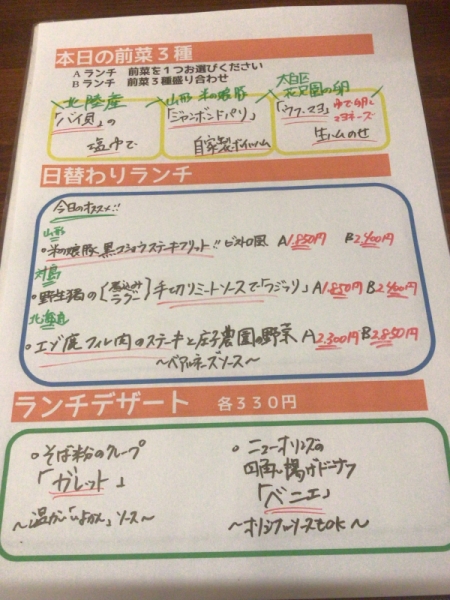 本日の前菜3種
Aランチ 前菜を1つお選びください
Bランチ 前菜3種盛り合わせ
北陸産
「バイ貝」の
塩ゆで
山形 米の娘豚
「ジャンボンドパリ」
自家製ボイルハム
「ウフ・マヨ」
ゆで卵に
マヨネーズ
生ハムのせ
日替わりランチ
今日のオススメ!!
山形
・米の娘豚 黒コショウステーキフリット!! ビストロ風 A1,850円 B2,400円
対島
・野生猪の[煮込みラグー]手切りミートソースで「フジッリ」 A1,850円 B2,400円
北海道
・エゾ鹿フィレ肉のステーキと庄子農園の野菜 A2,300円 B2,850円
〜ベアルネーズソース〜
ランチデザート 各330円
・そば粉のクレープ
「ガレット」
〜温かい「いよかん」ソース〜
・ニューオリンズの
四角い揚げドーナツ
「ベニエ」